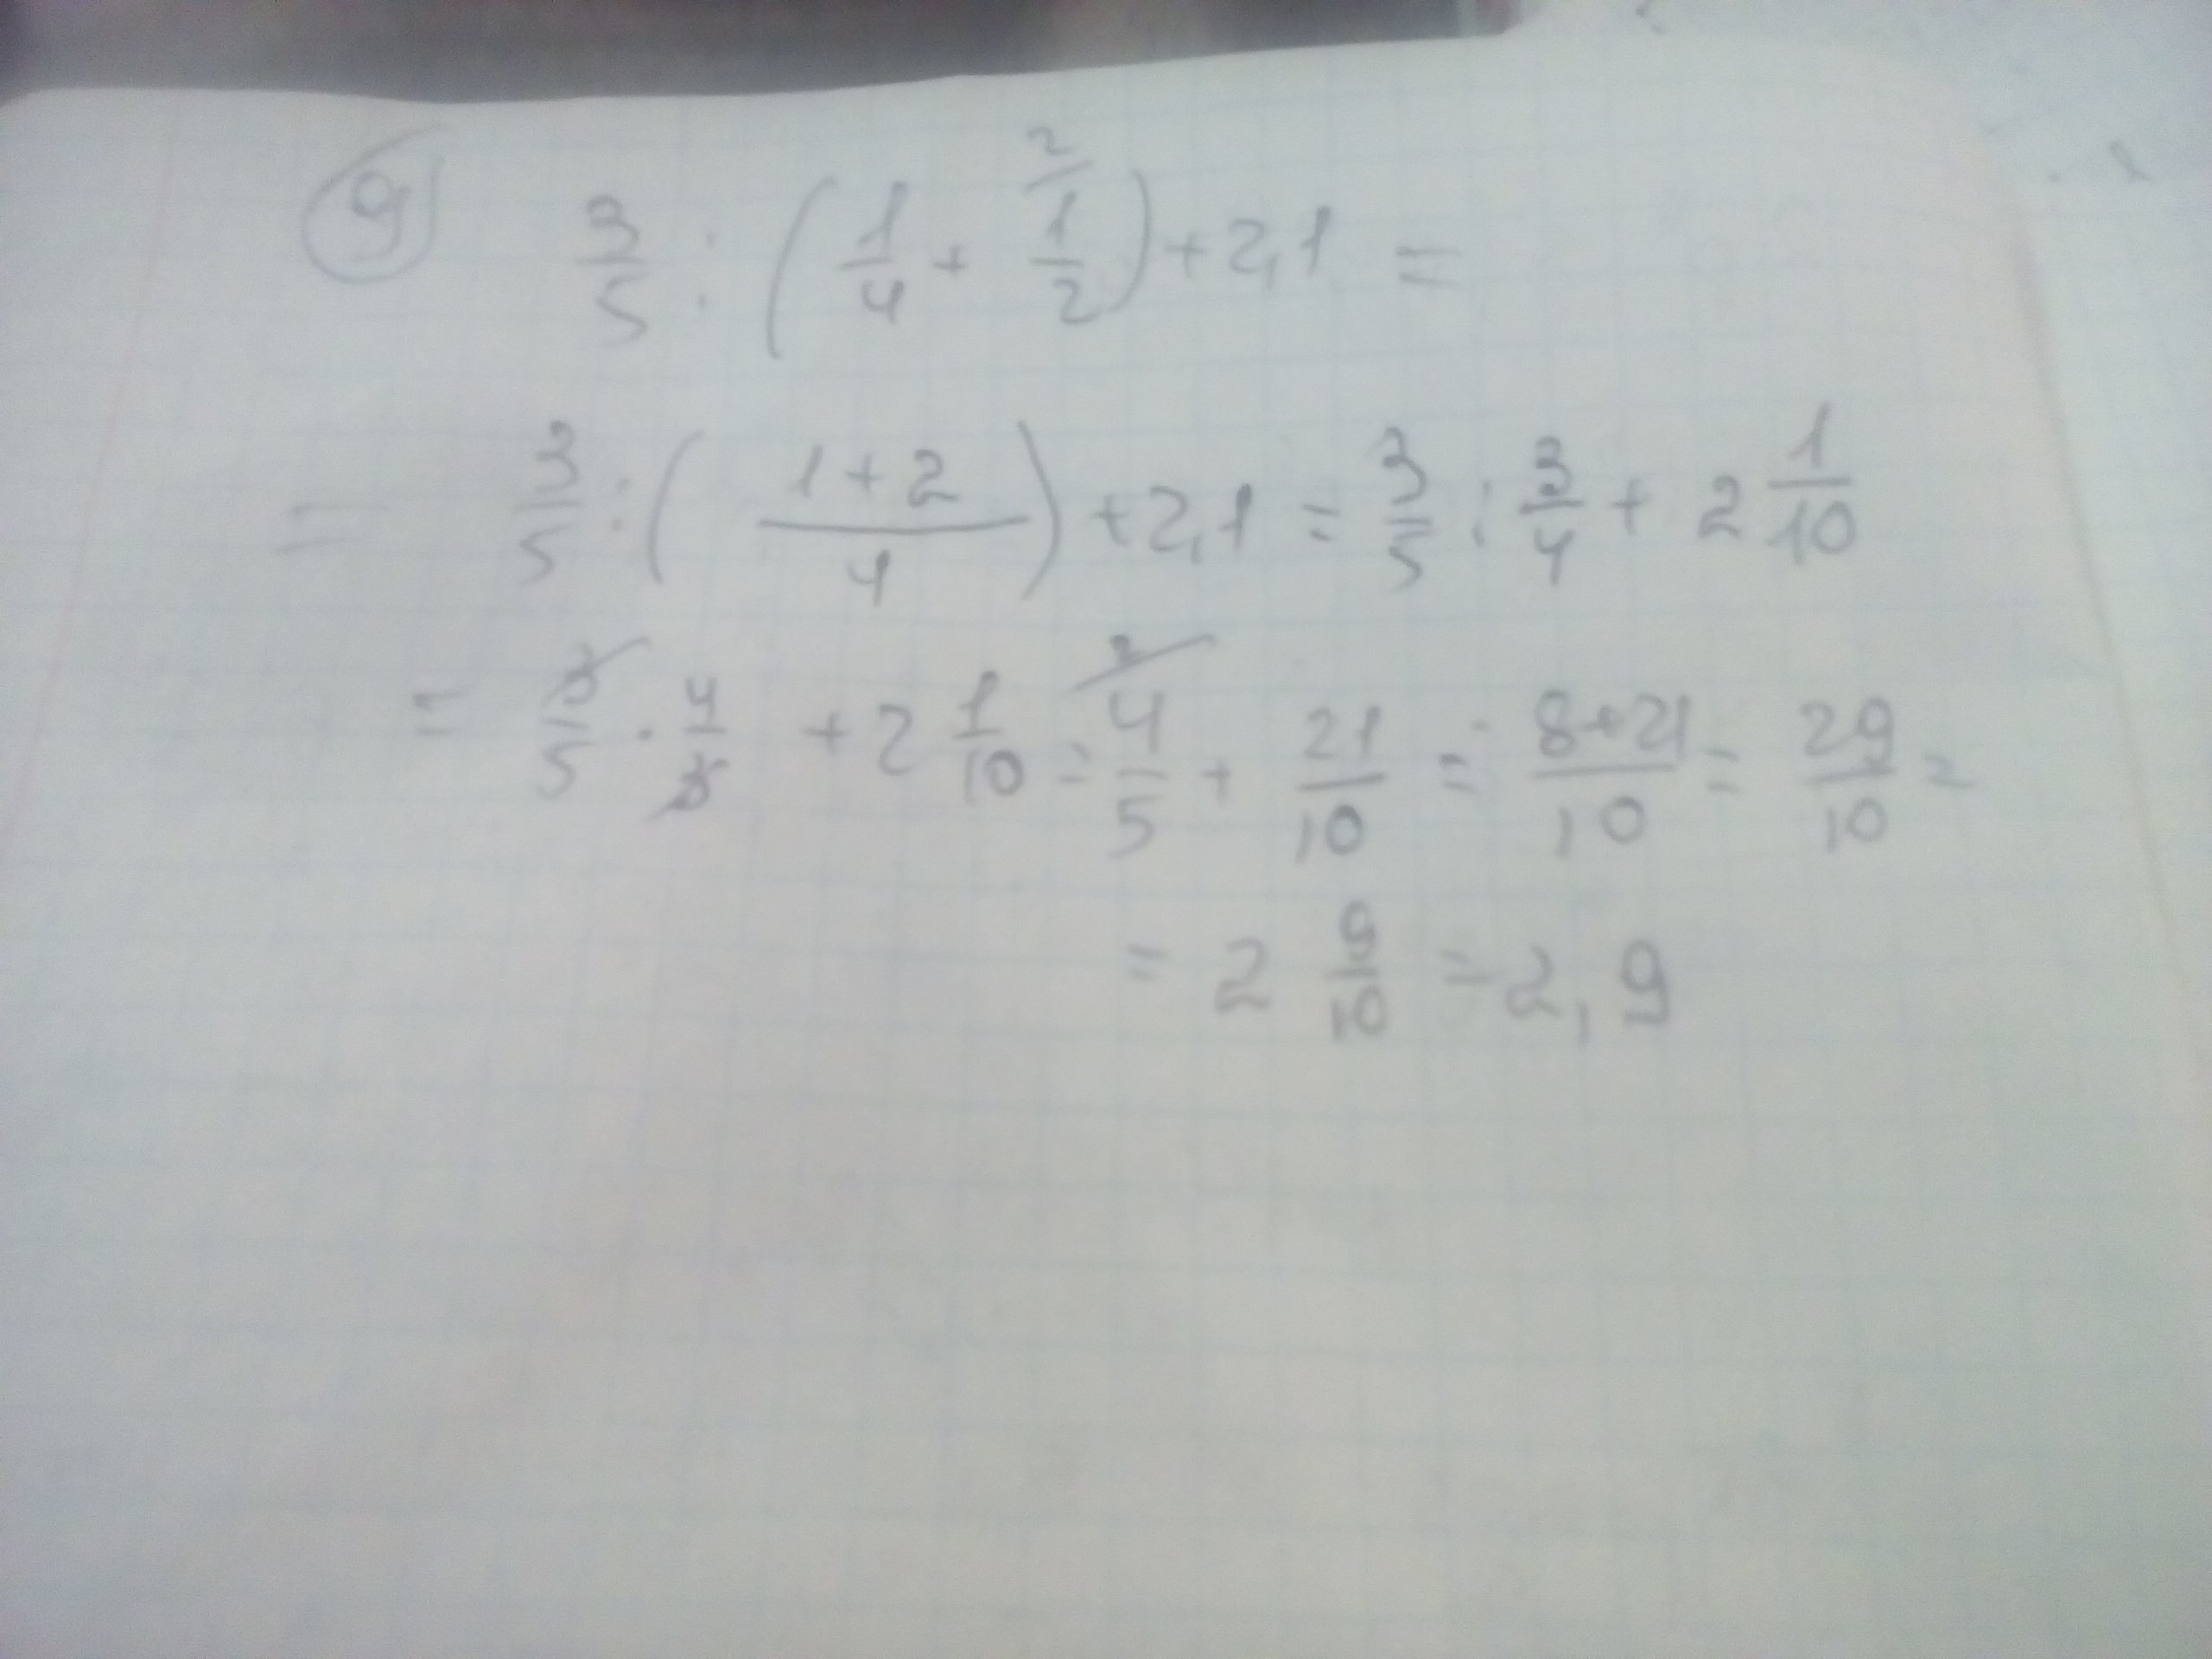 9 3/5 : (1/4 + 2/ 1/2) + 2,1 =
= 3/5 : ( (1+2)/4 ) + 2,1 = 3/5 : 3/4 + 2 1/10
= 3/5 · 4/3 + 2 1/10 = 2/ 4/5 + 21/10 = (8+21)/10 = 29/10 =
= 2 9/10 = 2,9